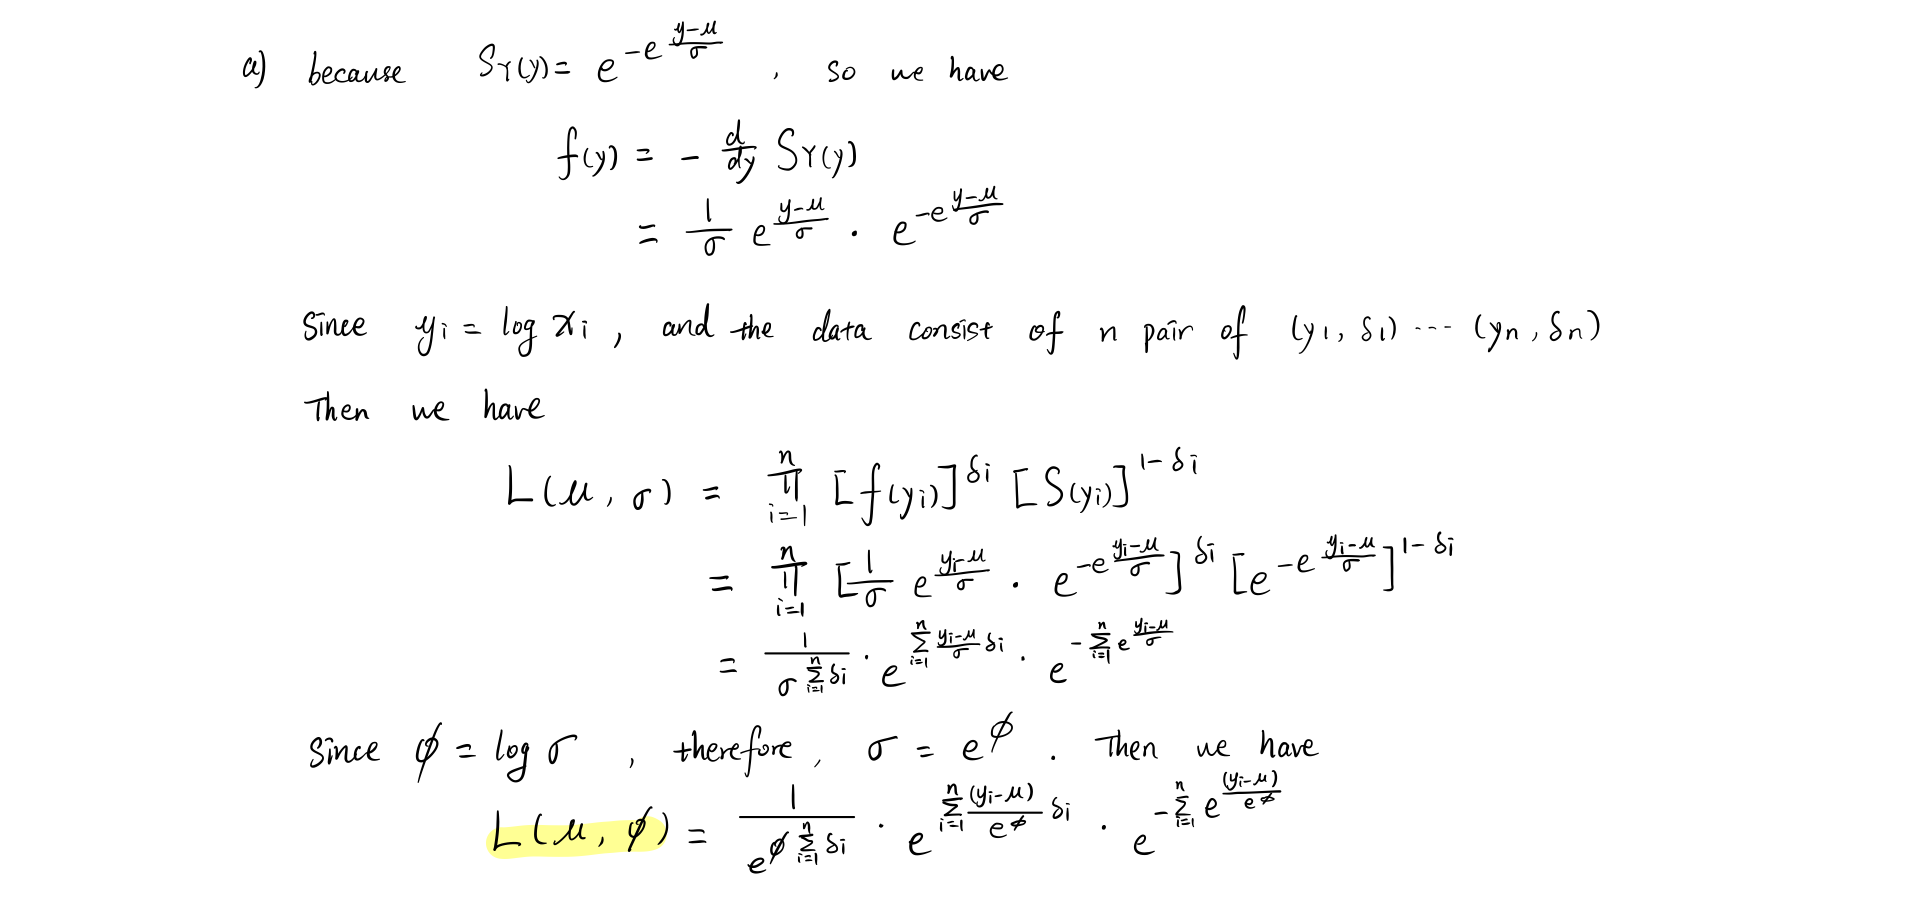 a) because S_Y(y) = e^{-e^{\frac{y-μ}{σ}}} , so we have
f(y) = - \frac{d}{dy} S_Y(y)
= \frac{1}{σ} e^{\frac{y-μ}{σ}} · e^{-e^{\frac{y-μ}{σ}}}
Since y_i = log x_i , and the data consist of n pair of (y_1, δ_1) --- (y_n, δ_n)
Then we have
L(μ, σ) = \prod_{i=1}^{n} [f(y_i)]^{δ_i} [S(y_i)]^{1-δ_i}
= \prod_{i=1}^{n} [\frac{1}{σ} e^{\frac{y_i-μ}{σ}} · e^{-e^{\frac{y_i-μ}{σ}}}]^{δ_i} [e^{-e^{\frac{y_i-μ}{σ}}}]^{1-δ_i}
= \frac{1}{σ^{\sum_{i=1}^{n} δ_i}} · e^{\sum_{i=1}^{n} \frac{y_i-μ}{σ} δ_i} · e^{-\sum_{i=1}^{n} e^{\frac{y_i-μ}{σ}}}
Since ϕ = log σ , therefore , σ = e^ϕ . Then we have
L(μ, ϕ) = \frac{1}{e^{ϕ \sum_{i=1}^{n} δ_i}} · e^{\sum_{i=1}^{n} \frac{(y_i-μ)}{e^ϕ} δ_i} · e^{-\sum_{i=1}^{n} e^{\frac{(y_i-μ)}{e^ϕ}}}